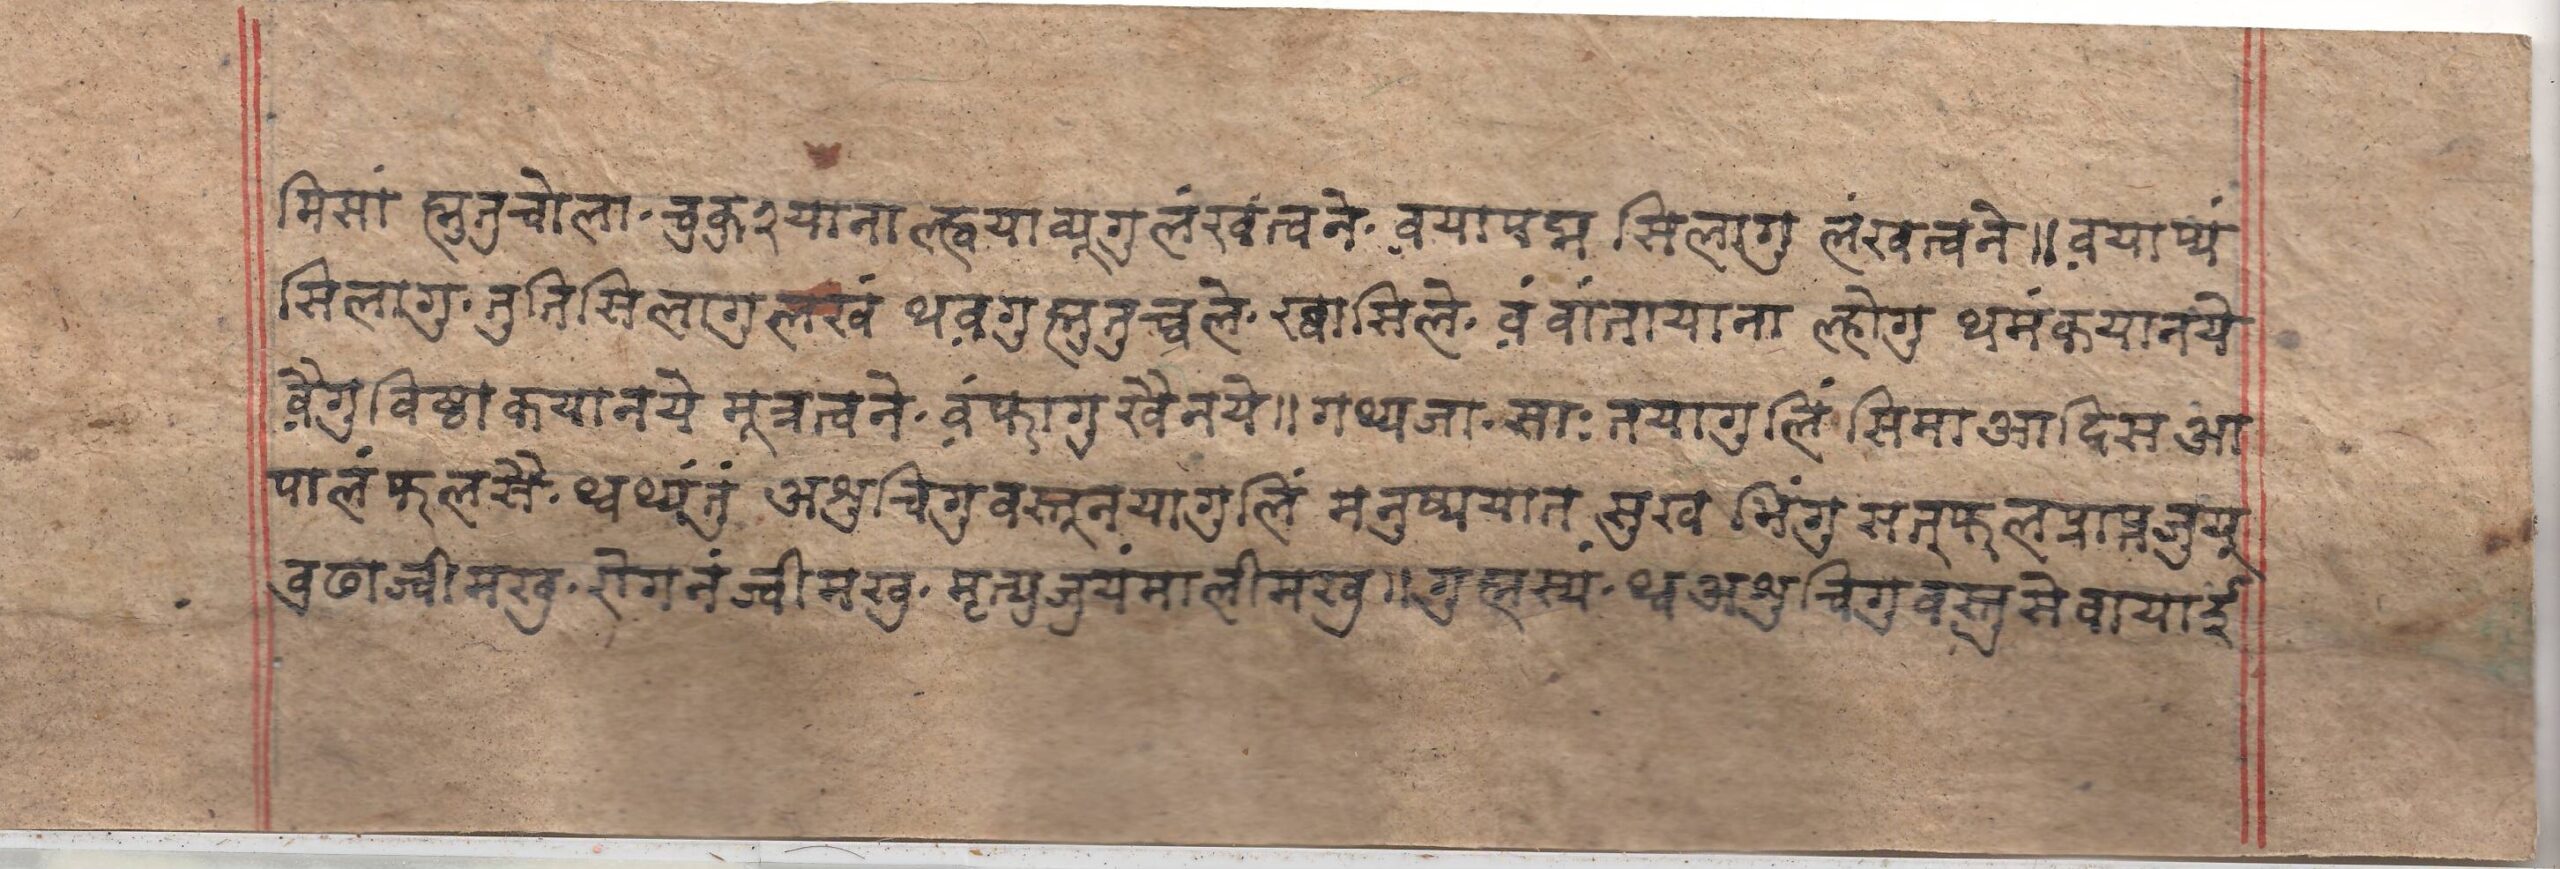 मिसां ह्नुतुचोला· चुकु२यानाल्ह्वयाव्यूगुलंखंत्वने· व़यापद्म सिलागु लंखत्वने॥ व़याप्यं
सिलागु· तुतिसिलागुलखं थव़गुह्नुतुच्वले· ख्वासिले· व़ंवांतायाना ल्होगु थमंकयानये
व़ैगुविष्ठाकयानये मूत्रत्वने· व़ंफागुखैनये॥ गथ्यजा· साः तयागुलिं सिमाआदिसआ
पालं फलसै· थ्वथ्यंतुं अशुचिगुवस्तूनयागुलिं मनुष्ययात सुख भिंगु सत्फलप्राप्तजुयू
वुढाज्वीमखु· रोगनंज्वीमखु· मृत्युजुयंमालीमखु॥ गुह्नस्यं· थ्वअशुचिगुवस्तुसेवायाई